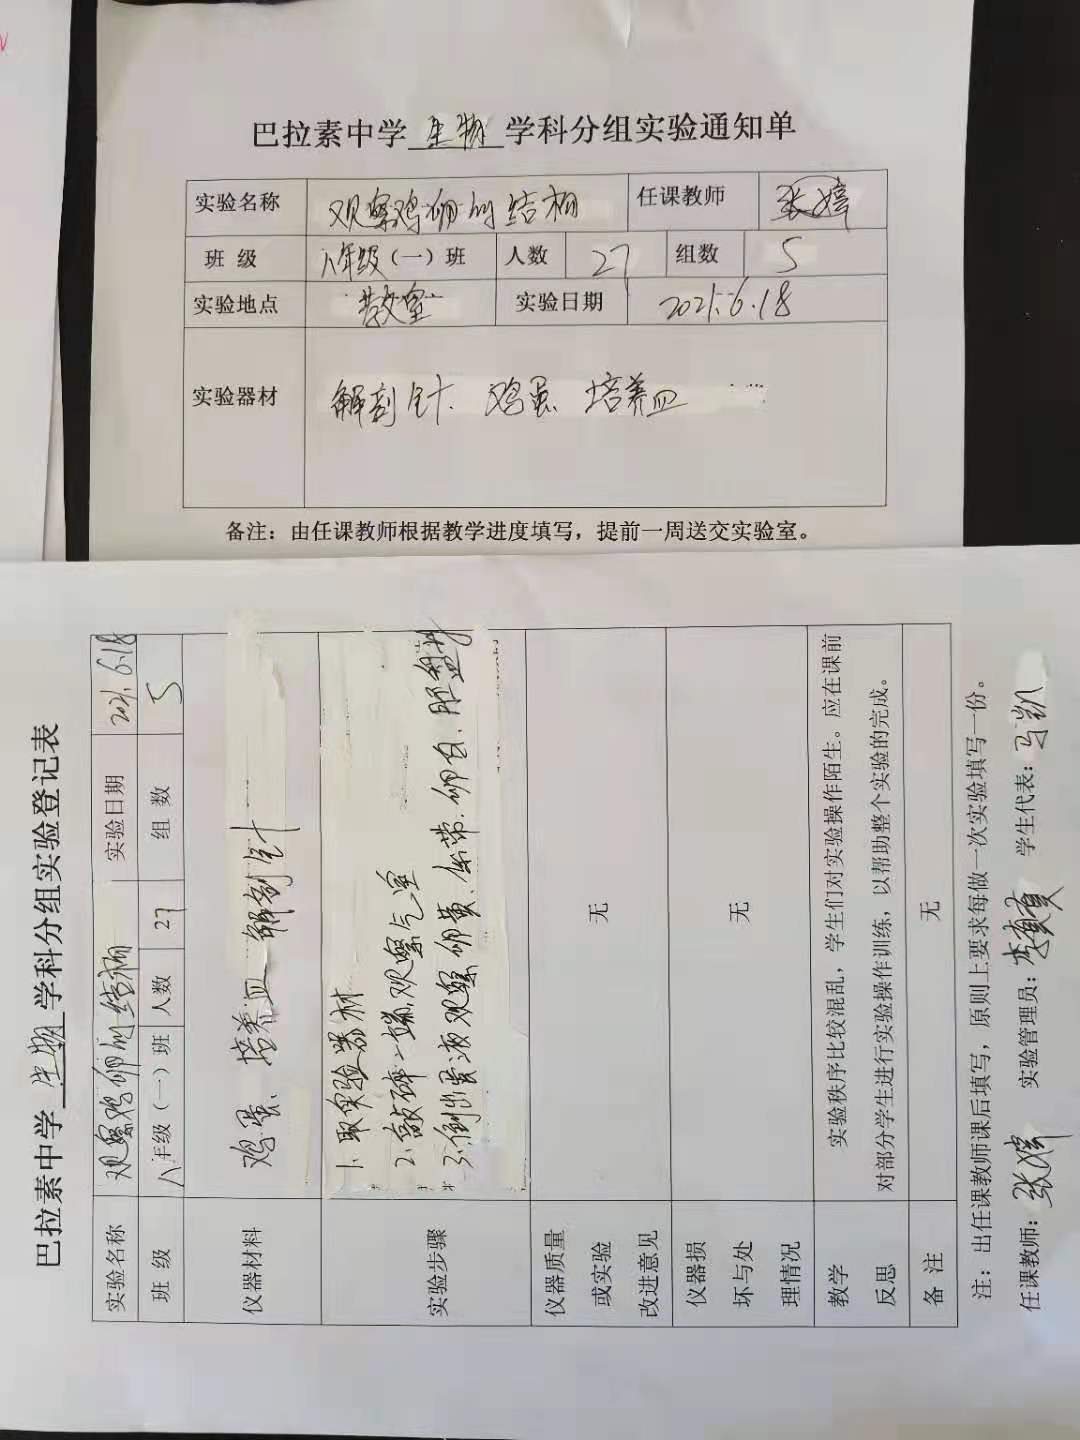 巴拉素中学 生物 学科分组实验通知单
实验名称 观察鸡卵的结构 任课教师 张婷
班 级 八年级(一)班 人数 27 组数 5
实验地点 教室 实验日期 2021.6.18
实验器材 解剖针、鸡蛋、培养皿
备注:由任课教师根据教学进度填写,提前一周送交实验室。
巴拉素中学 生物 学科分组实验登记表
实验名称 观察鸡卵的结构 实验日期 2021.6.18
班 级 八年级(一)班 人数 27 组 数 5
仪器材料 鸡蛋、培养皿 解剖针
实验步骤
1.取实验器材
2.敲碎一端,观察气室
3.倒出蛋液观察卵黄、系带、卵白、胚盘
仪器质量或实验改进意见 无
仪器损坏与处理情况 无
教学反思 实验秩序比较混乱,学生们对实验操作陌生。应在课前
对部分学生进行实验操作训练,以帮助整个实验的完成。
备 注 无
注:出任课教师课后填写,原则上要求每做一次实验填写一份。
任课教师:张婷 实验管理员:李真真 学生代表:马凯